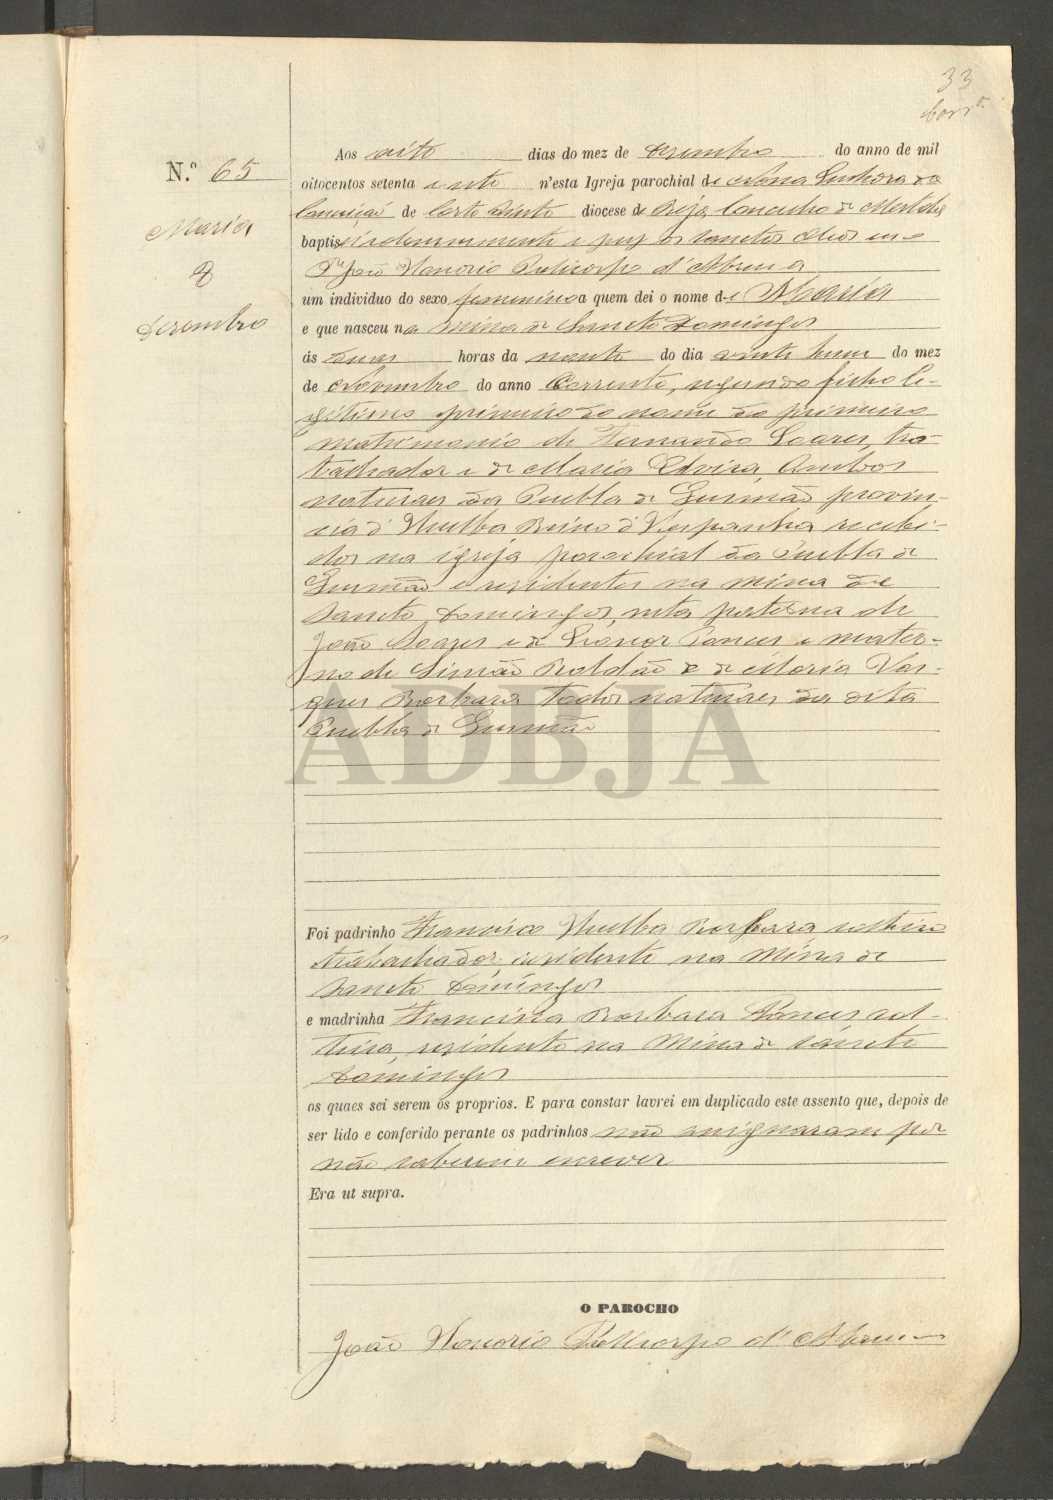 33
N.º 65
Maria
8
Dezembro
Aos oito dias do mez de Dezembro do anno de mil
oitocentos setenta e sete n'esta Igreja parochial de Nossa Senhora da
Conceição de Corte Pinto diocese de Beja Concelho de Mertola
baptisei solemnemente e puz os sanctos oleos eu o
P.e João Honorio Policarpo d'Abreu a
um individuo do sexo femenino a quem dei o nome de Maria
e que nasceu na mina de Sancto Domingos
ás duas horas da noute do dia vinte hum do mez
de Novembro do anno Corrente, segundo filho le-
gitimo primeiro do nome do primeiro
matrimonio de Fernando Soares, tra-
balhador e de Maria Elvira, Ambos
naturaes da Puebla de Gusmão provin-
cia d' Huelba Reino d' Hespanha recebi-
dos na igreja parochial da Puebla de
Gusmão e residentes na mina de
Sancto Domingos, neta paterna de
João Soares e de Leonor Ponces e mater-
na de Simão Roldão e de Maria Vas-
ques Barbara todos naturaes da dita
Puebla de Gusmão
ADBJA
Foi padrinho Francisco Huelba Barbara solteiro
trabalhador, residente na Mina de
Sancto Domingos
e madrinha Francisca Barbara Ponces sol-
teira, residente na Mina de Sancto
Domingos
os quaes sei serem os proprios. E para constar lavrei em duplicado este assento que, depois de
ser lido e conferido perante os padrinhos não assignaram por
não saberem escrever
Era ut supra.
O PAROCHO
João Honorio Policarpo d' Abreu